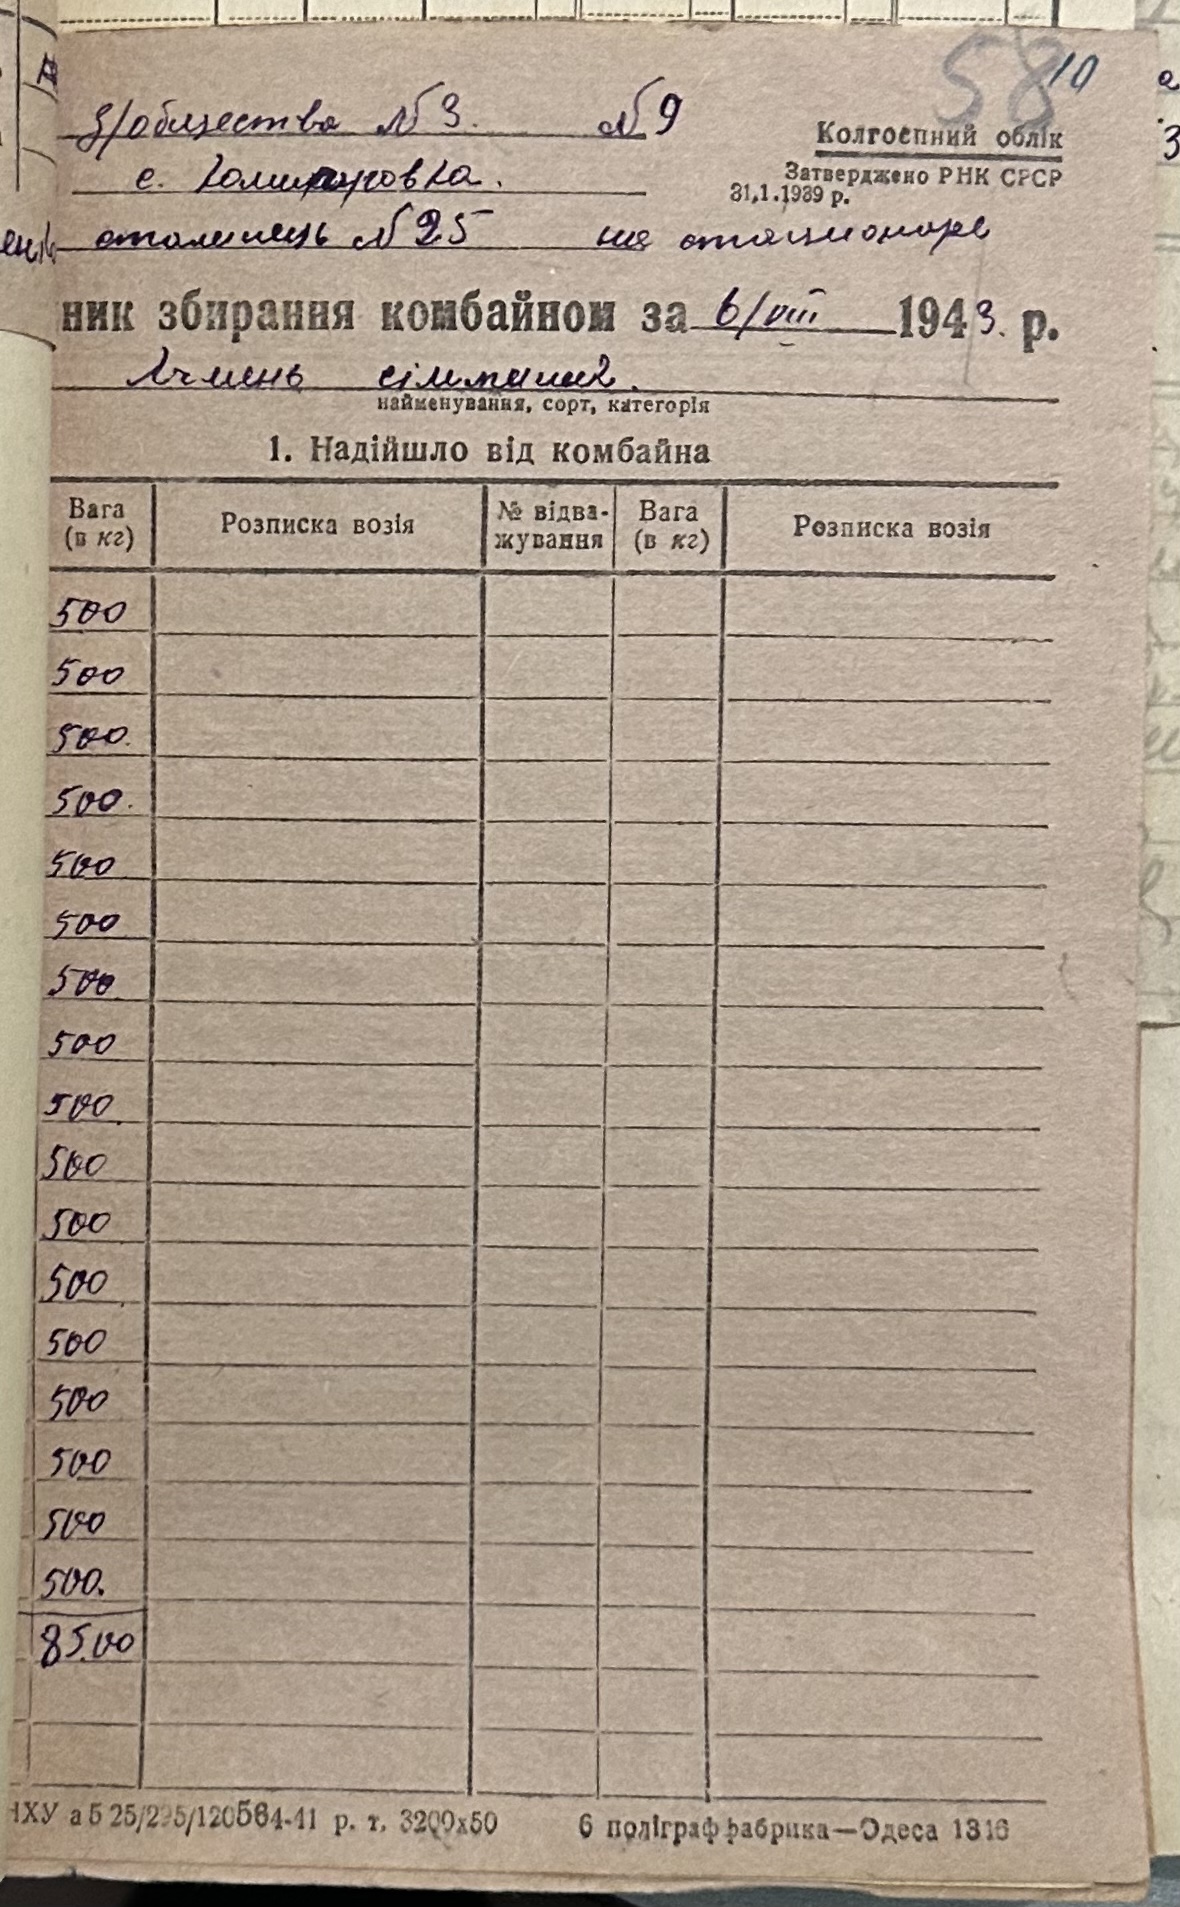 58 10
З/общества №3. №9
Колгоспний облік
Затверджено РНК СРСР
31.1.1939 р.
с.
сталинець №25 на стационаре
ник збирання комбайном за 6/VIII 1943. р.
Ячмень
найменування, сорт, категорія
1. Надійшло від комбайна
Вага (в кг) Розписка возія № відва-жування Вага (в кг) Розписка возія
500
500
500.
500.
500
500
500
500
500
500
500
500
500
500
500
500
500.
8500
НХУ а 5 25/295/120564-41 р. т. 3200х50 6 поліграффабрика—Одеса 1316